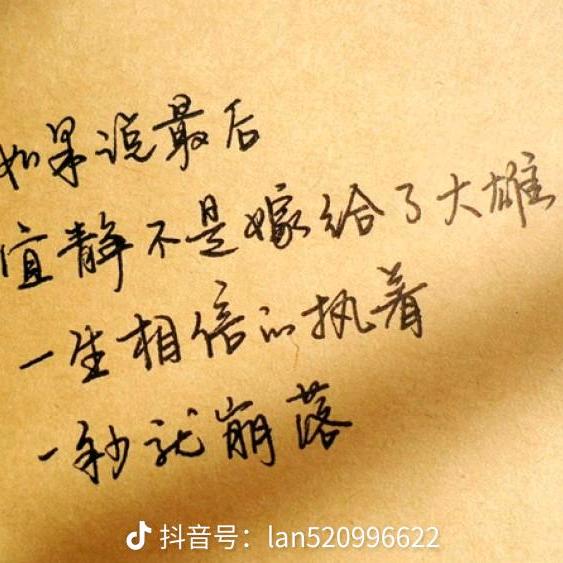 如果说最后
宜静不是嫁给了大雄
一生相信的执着
一秒就崩落
抖音号：lan520996622